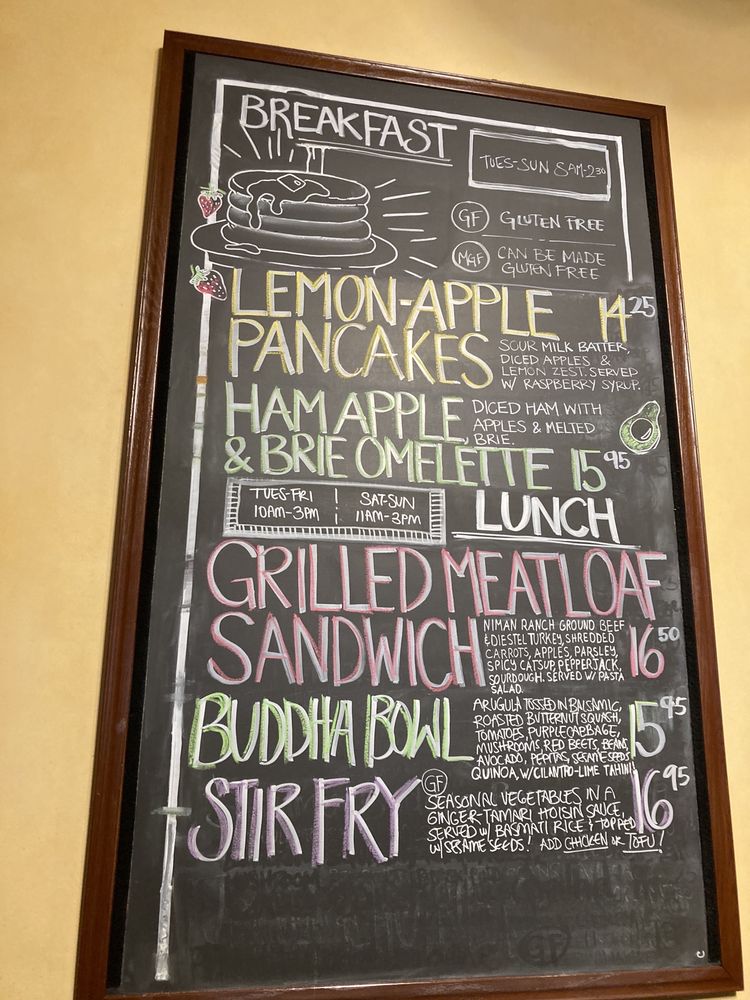 BREAKFAST
TUES-SUN 8AM-2:30
GF GLUTEN FREE
MGF CAN BE MADE
GLUTEN FREE
LEMON-APPLE 14 25
PANCAKES
SOUR MILK BATTER,
DICED APPLES &
LEMON ZEST. SERVED
W/ RASPBERRY SYRUP.
HAM APPLE,
DICED HAM WITH
APPLES & MELTED
BRIE.
& BRIE OMELETTE 15 95
TUES-FRI | SAT-SUN
10AM-3PM | 11AM-3PM
LUNCH
GRILLED MEATLOAF
SANDWICH
NIMAN RANCH GROUND BEEF
& DIESTEL TURKEY, SHREDDED
CARROTS, APPLES, PARSLEY,
SPICY CATSUP, PEPPERJACK,
SOURDOUGH. SERVED W/ PASTA
SALAD.
16 50
BUDDHA BOWL
ARUGULA TOSSED IN BALSAMIC,
ROASTED BUTTERNUT SQUASH,
TOMATOES, PURPLE CABBAGE,
MUSHROOMS, RED BEETS, BEANS,
AVOCADO, PEPITAS, SESAME SEEDS
QUINOA, W/CILANTRO-LIME TAHINI
15 95
STIR FRY
GF
SEASONAL VEGETABLES IN A
GINGER-TAMARI HOISIN SAUCE,
SERVED W/ BASMATI RICE & TOPPED
W/ SESAME SEEDS! ADD CHICKEN OR TOFU!
16 95